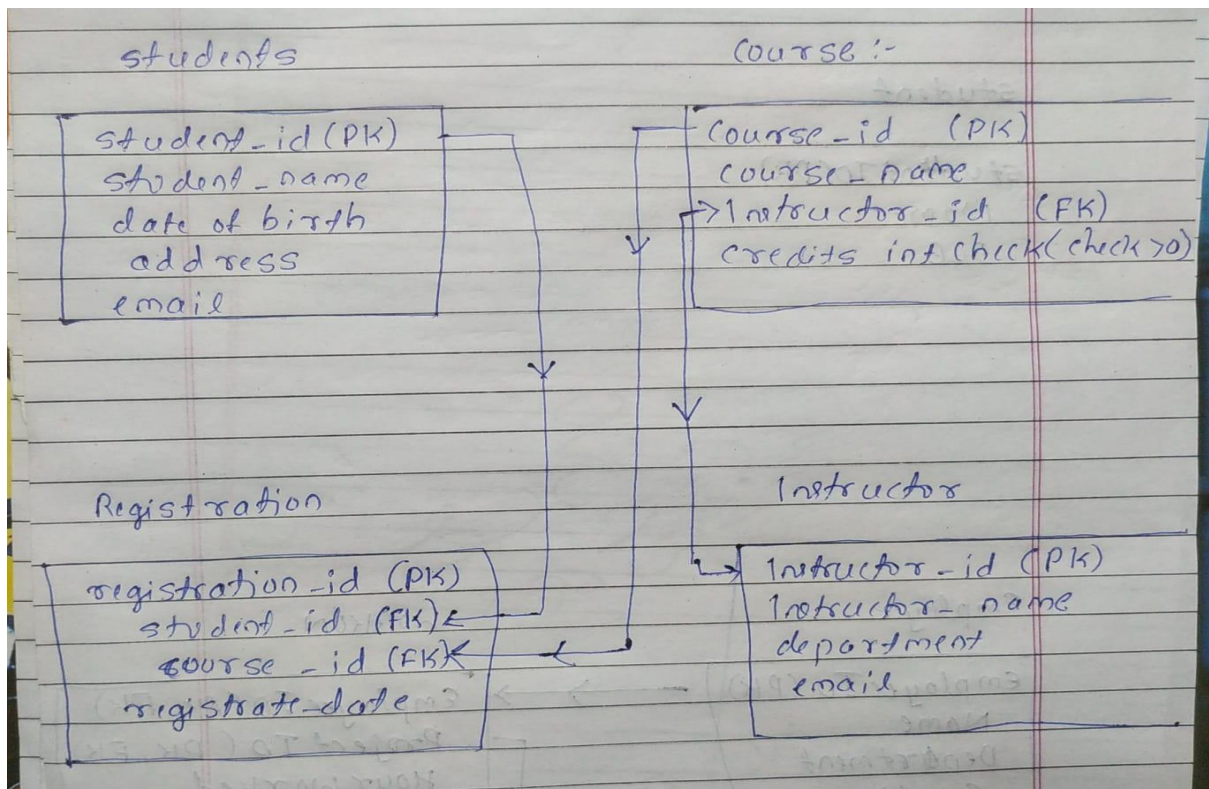 students
student_id (PK)
student_name
date of birth
address
email
Course :-
Course_id (PK)
course_name
Instructor_id (FK)
credits int check (check >0)
Registration
registration_id (PK)
student_id (FK)
course_id (FK)
registrate_date
Instructor
Instructor_id (PK)
Instructor_name
department
email